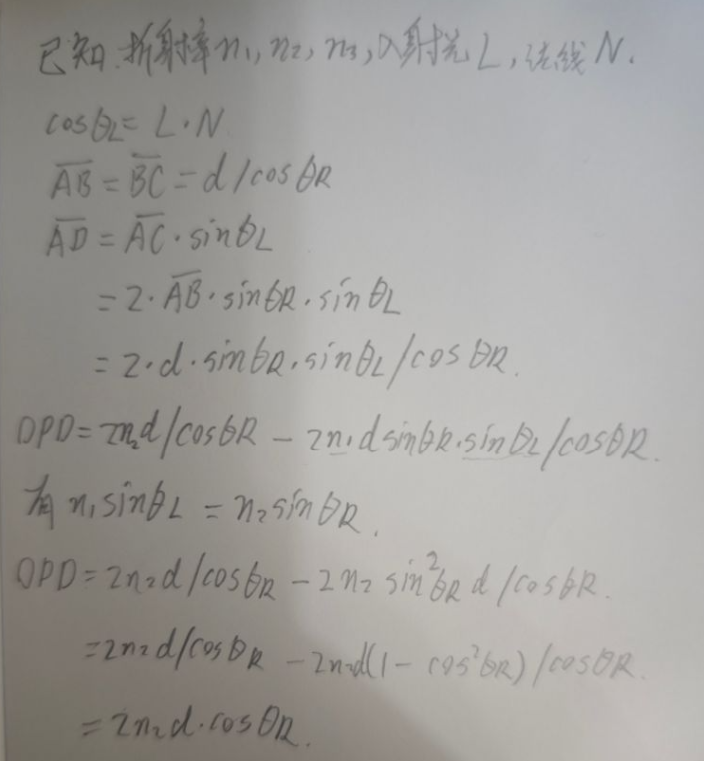 已知:折射率n₁,n₂,n₃,入射光L,法线N.
cosθL=L·N
A̅B̅=B̅C̅=d/cosθR
A̅D̅=A̅C̅·sinθL
=2·A̅B̅·sinθR·sinθL
=2·d·sinθR·sinθL/cosθR.
OPD=2n₂d/cosθR-2n₁dsinθR·sinθL/cosθR.
有n₁sinθL=n₂sinθR.
OPD=2n₂d/cosθR-2n₂sin²θRd/cosθR.
=2n₂d/cosθR-2n₂d(1-cos²θR)/cosθR.
=2n₂d·cosθR.